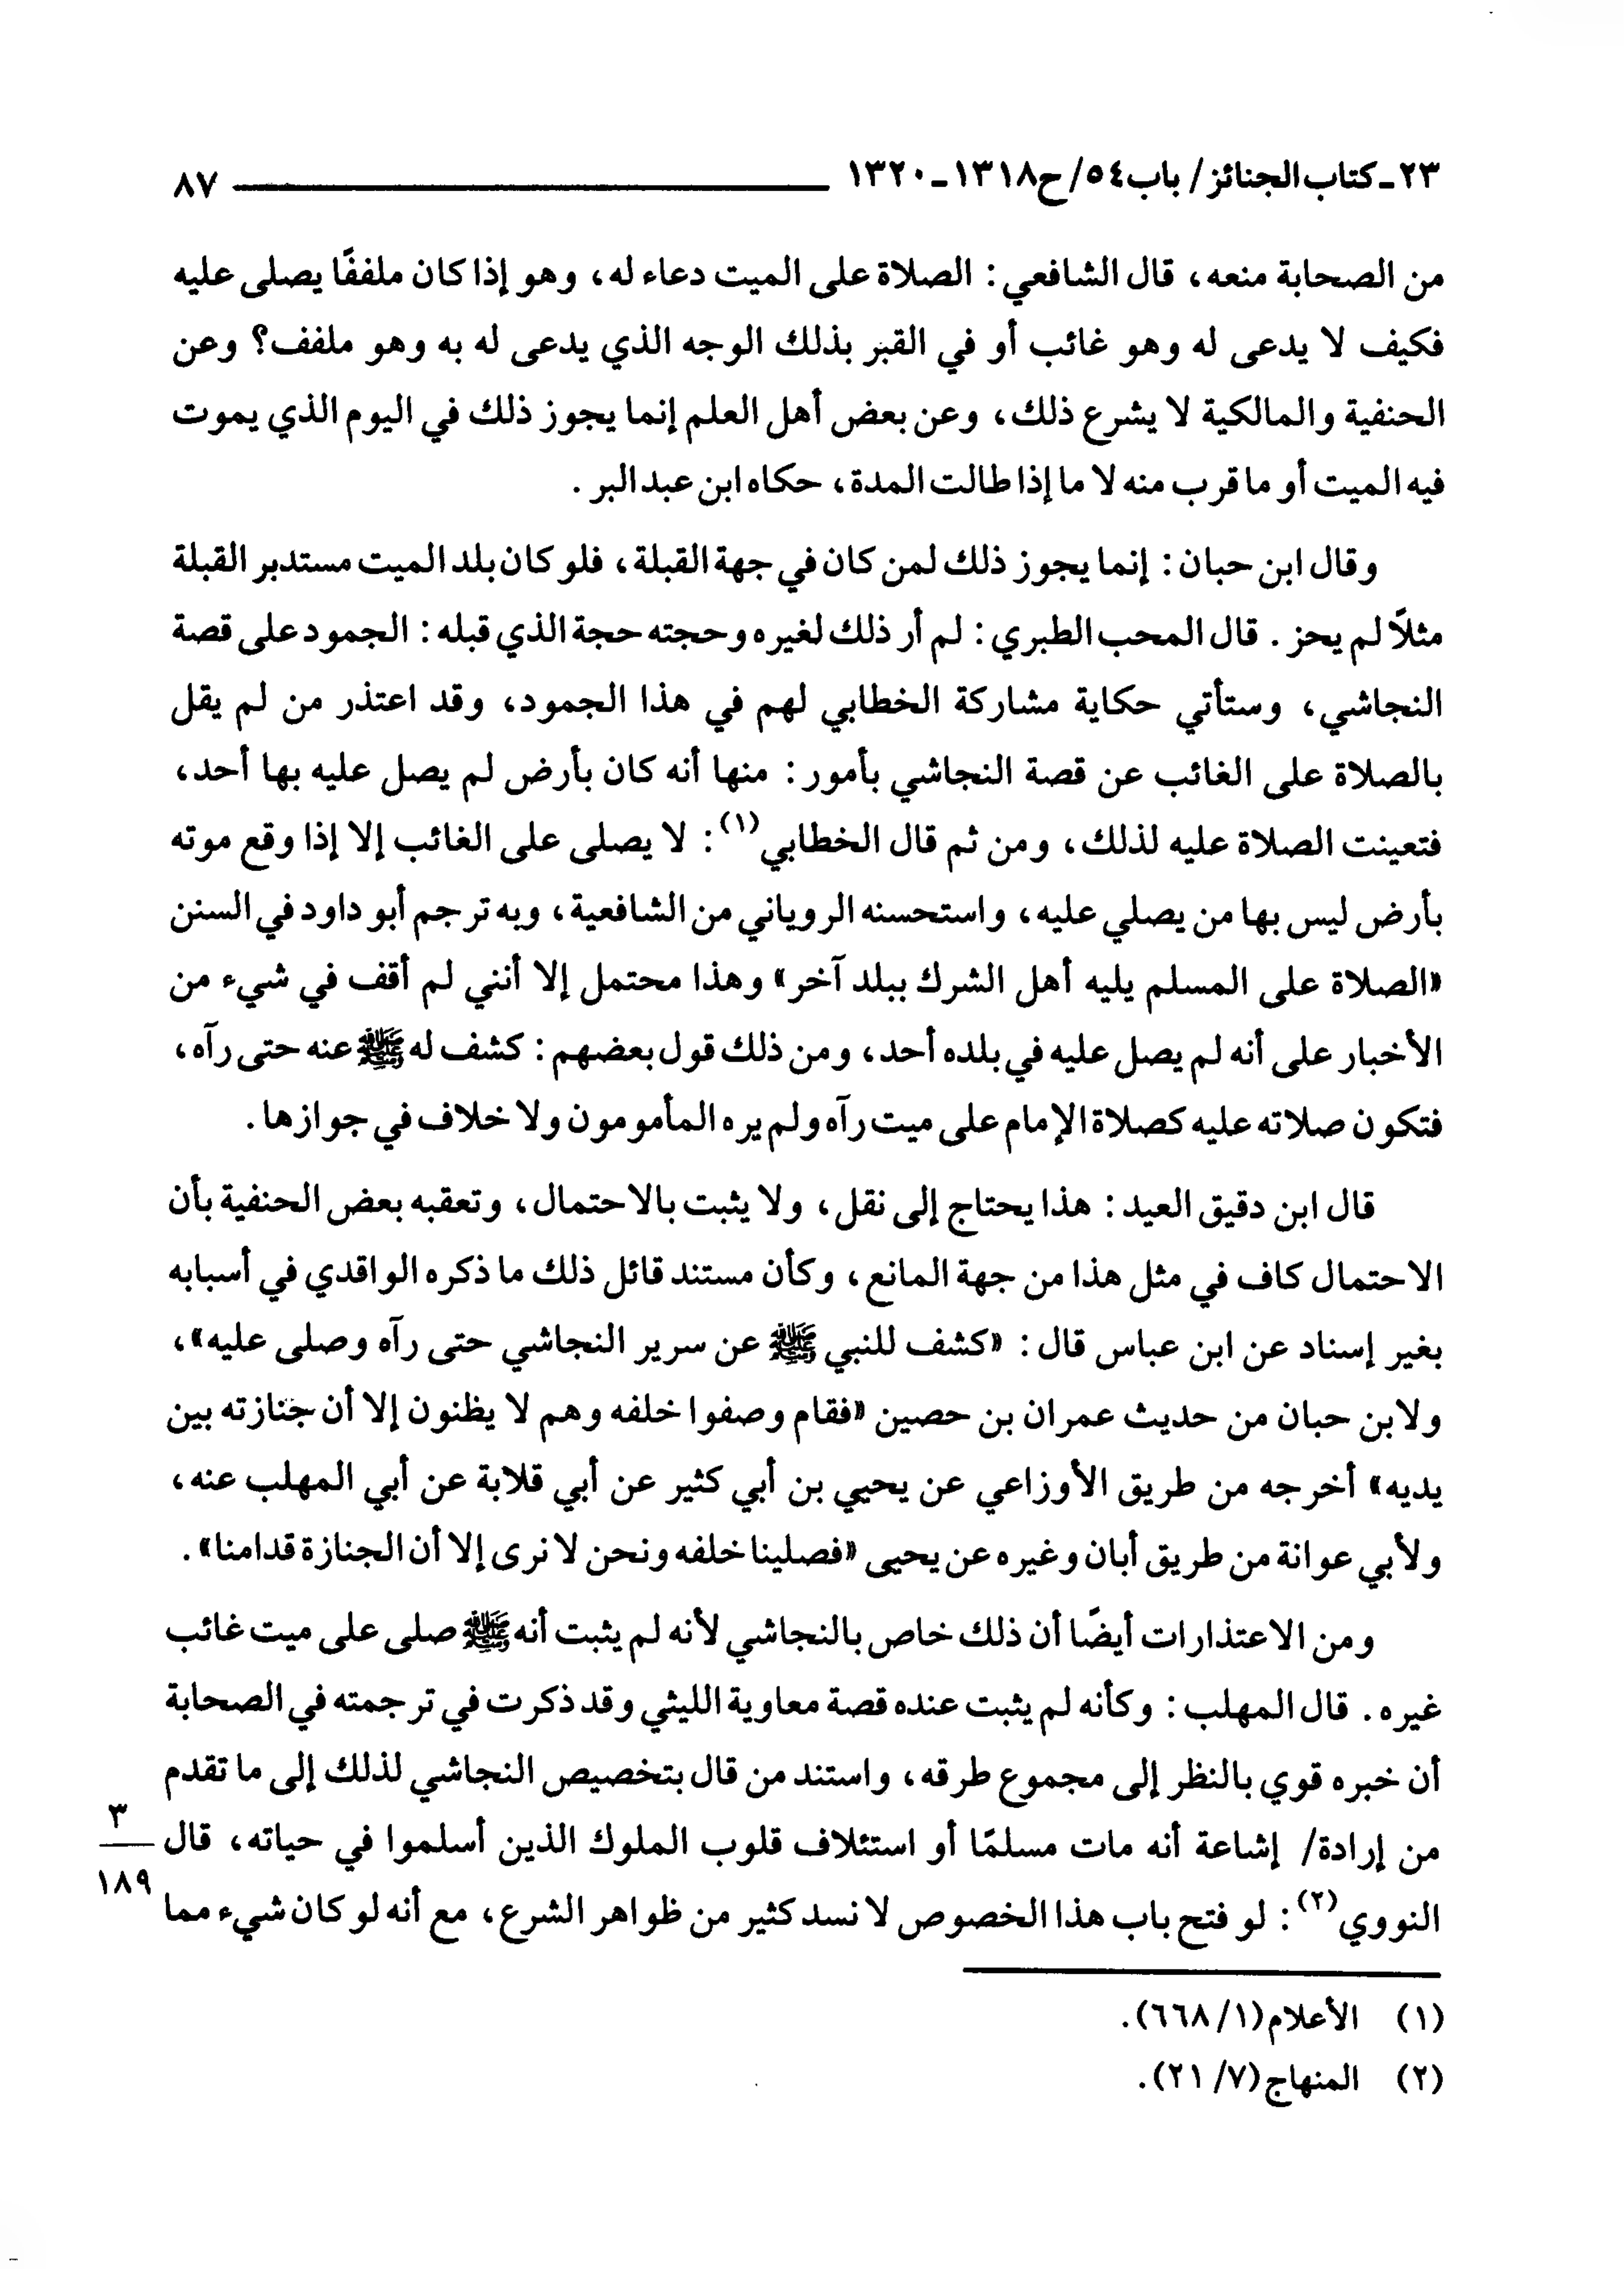 ٢٣ ـ كتاب الجنائز / باب ٥٤ / ح ١٣١٨ ـ ١٣٢٠ ٨٧
من الصحابة منعه، قال الشافعي: الصلاة على الميت دعاء له، وهو إذا كان ملففًا يصلى عليه
فكيف لا يدعى له وهو غائب أو في القبر بذلك الوجه الذي يدعى له به وهو ملفف؟ وعن
الحنفية والمالكية لا يشرع ذلك، وعن بعض أهل العلم إنما يجوز ذلك في اليوم الذي يموت
فيه الميت أو ما قرب منه لا ما إذا طالت المدة، حكاه ابن عبد البر.
وقال ابن حبان: إنما يجوز ذلك لمن كان في جهة القبلة، فلو كان بلد الميت مستدبر القبلة
مثلاً لم يحز. قال المحب الطبري: لم أر ذلك لغيره وحجته حجة الذي قبله: الجمود على قصة
النجاشي، وستأتي حكاية مشاركة الخطابي لهم في هذا الجمود، وقد اعتذر من لم يقل
بالصلاة على الغائب عن قصة النجاشي بأمور: منها أنه كان بأرض لم يصل عليه بها أحد،
فتعينت الصلاة عليه لذلك، ومن ثم قال الخطابي(١): لا يصلى على الغائب إلا إذا وقع موته
بأرض ليس بها من يصلي عليه، واستحسنه الروياني من الشافعية، وبه ترجم أبو داود في السنن
«الصلاة على المسلم يليه أهل الشرك ببلد آخر» وهذا محتمل إلا أنني لم أقف في شيء من
الأخبار على أنه لم يصل عليه في بلده أحد، ومن ذلك قول بعضهم: كشف له ﷺ عنه حتى رآه،
فتكون صلاته عليه كصلاة الإمام على ميت رآه ولم يره المأمومون ولا خلاف في جوازها.
قال ابن دقيق العيد: هذا يحتاج إلى نقل، ولا يثبت بالاحتمال، وتعقبه بعض الحنفية بأن
الاحتمال كاف في مثل هذا من جهة المانع، وكأن مستند قائل ذلك ما ذكره الواقدي في أسبابه
بغير إسناد عن ابن عباس قال: «كشف للنبي ﷺ عن سرير النجاشي حتى رآه وصلى عليه»،
ولابن حبان من حديث عمران بن حصين «فقام وصفوا خلفه وهم لا يظنون إلا أن جنازته بين
يديه» أخرجه من طريق الأوزاعي عن يحيي بن أبي كثير عن أبي قلابة عن أبي المهلب عنه،
ولأبي عوانة من طريق أبان وغيره عن يحيى «فصلينا خلفه ونحن لا نرى إلا أن الجنازة قدامنا».
ومن الاعتذارات أيضًا أن ذلك خاص بالنجاشي لأنه لم يثبت أنه ﷺ صلى على ميت غائب
غيره. قال المهلب: وكأنه لم يثبت عنده قصة معاوية الليثي وقد ذكرت في ترجمته في الصحابة
أن خبره قوي بالنظر إلى مجموع طرقه، واستند من قال بتخصيص النجاشي لذلك إلى ما تقدم
من إرادة/ إشاعة أنه مات مسلمًا أو استئلاف قلوب الملوك الذين أسلموا في حياته، قال
٣
١٨٩
النووي(٢): لو فتح باب هذا الخصوص لا نسد كثير من ظواهر الشرع، مع أنه لو كان شيء مما
(١) الأعلام (١/ ٦٦٨).
(٢) المنهاج (٧/ ٢١).